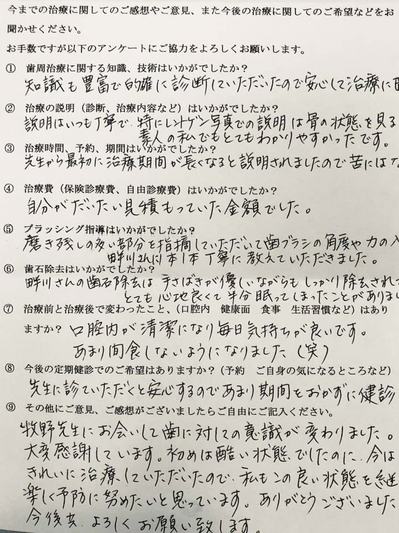 今までの治療に関してのご感想やご意見、また今後の治療に関してのご希望などをお
聞かせください。
お手数ですが以下のアンケートにご協力をよろしくお願いします。
① 歯周治療に関する知識、技術はいかがでしたか？
知識も豊富で的確に診断していただいたので安心して治療に
② 治療の説明（診断、治療内容など）はいかがでしたか？
説明はいつも丁寧で、特にレントゲン写真での説明は骨の状態を見る
素人の私でもとてもわかりやすかったです。
③ 治療時間、予約、期間はいかがでしたか？
先生から最初に治療期間が長くなると説明されましたので苦には
④ 治療費（保険診療費、自由診療費）はいかがでしたか？
自分がだいたい見積もっていた金額でした。
⑤ ブラッシング指導はいかがでしたか？
磨き残しの多い部分を指摘していただいて歯ブラシの角度や力の入
畔川さんに1本1本丁寧に教えていただきました。
⑥ 歯石除去はいかがでしたか？
畔川さんの歯石除去は手さばきが優しいながらもしっかり除去されて
とても心地良くて半分眠ってしまったことがありま
⑦ 治療前と治療後で変わったこと、（口腔内 健康面 食事 生活習慣など）はあり
ますか？ 口腔内が清潔になり毎日気持ちが良いです。
あまり間食しないようになりました（笑）
⑧ 今後の定期健診でのご希望はありますか？（予約 ご自身の気になるところなど）
先生に診ていただくと安心するのであまり期間をおかずに健診
⑨ その他にご意見、ご感想がございましたらご自由にご記入ください。
牧野先生にお会いして歯に対しての意識が変わりました。
大変感謝しています。初めは酷い状態でしたのに、今は
きれいに治療していただいたので、私もこの良い状態を継
楽しく予防に努めたいと思っています。ありがとうございました
今後共、よろしくお願い致します。